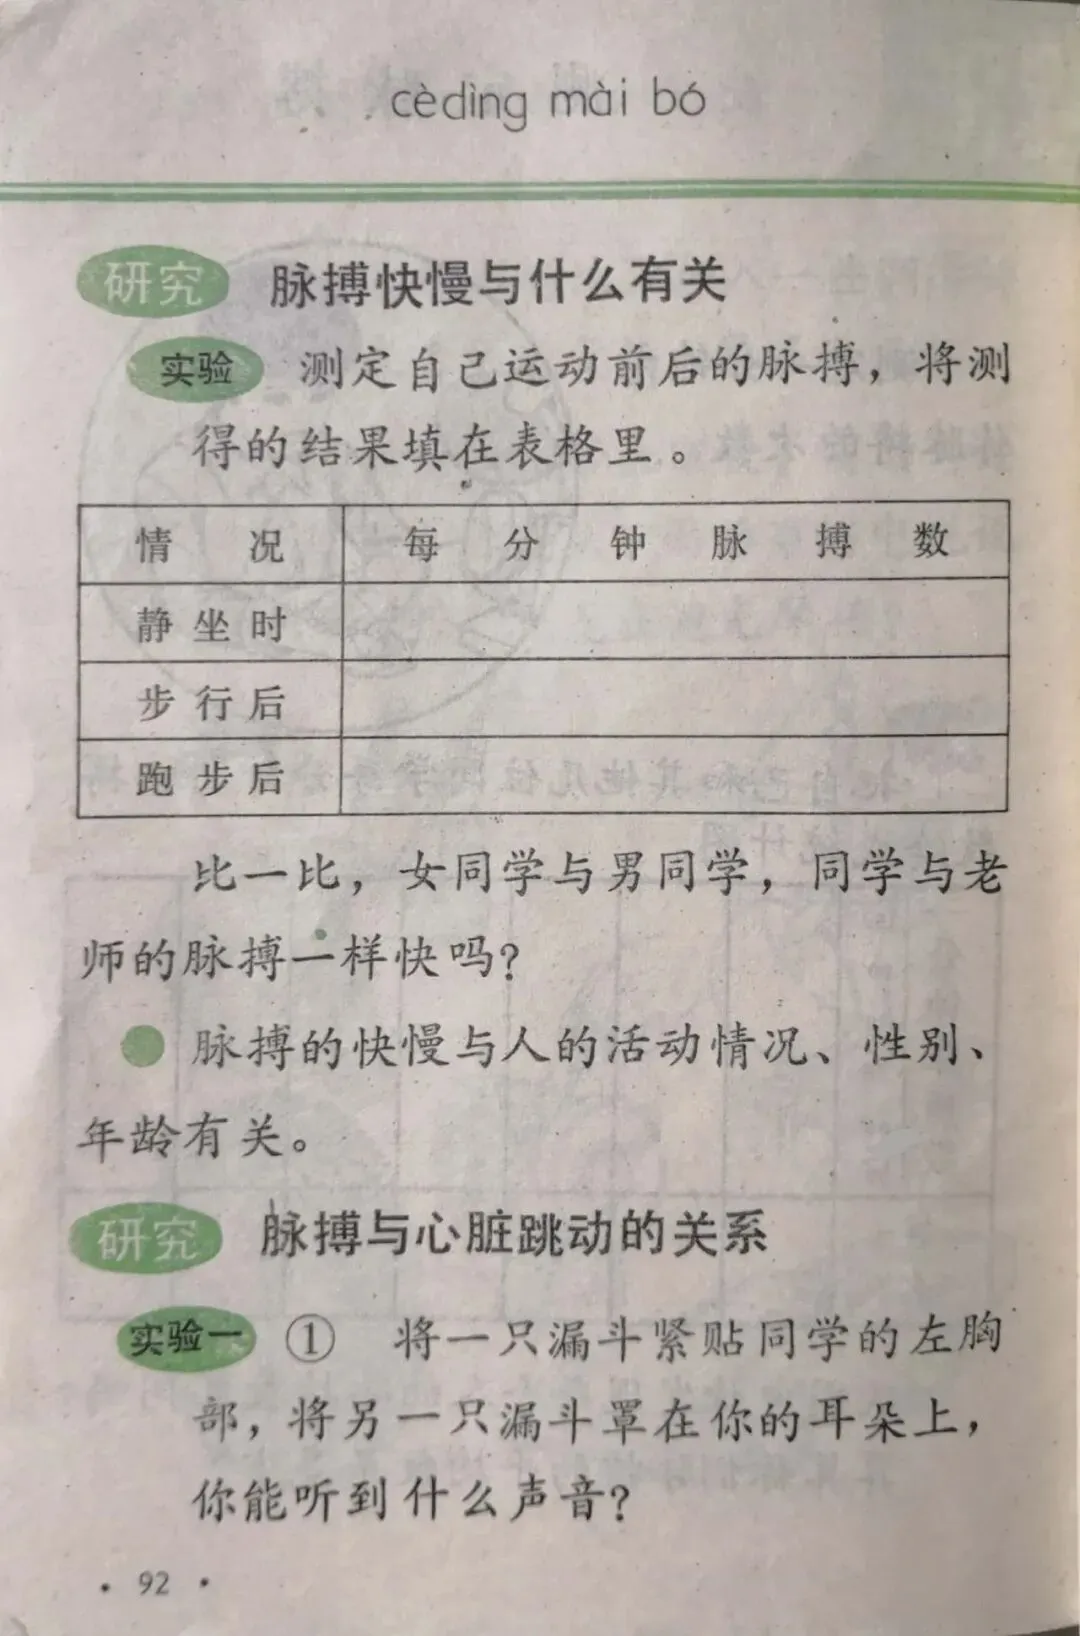 cèdìng mài bó
研究 脉搏快慢与什么有关
实验 测定自己运动前后的脉搏，将测
得的结果填在表格里。
情况 每分钟脉搏数
静坐时
步行后
跑步后
比一比，女同学与男同学，同学与老
师的脉搏一样快吗？
脉搏的快慢与人的活动情况、性别、
年龄有关。
研究 脉搏与心脏跳动的关系
实验一 ① 将一只漏斗紧贴同学的左胸
部，将另一只漏斗罩在你的耳朵上，
你能听到什么声音？
·92·